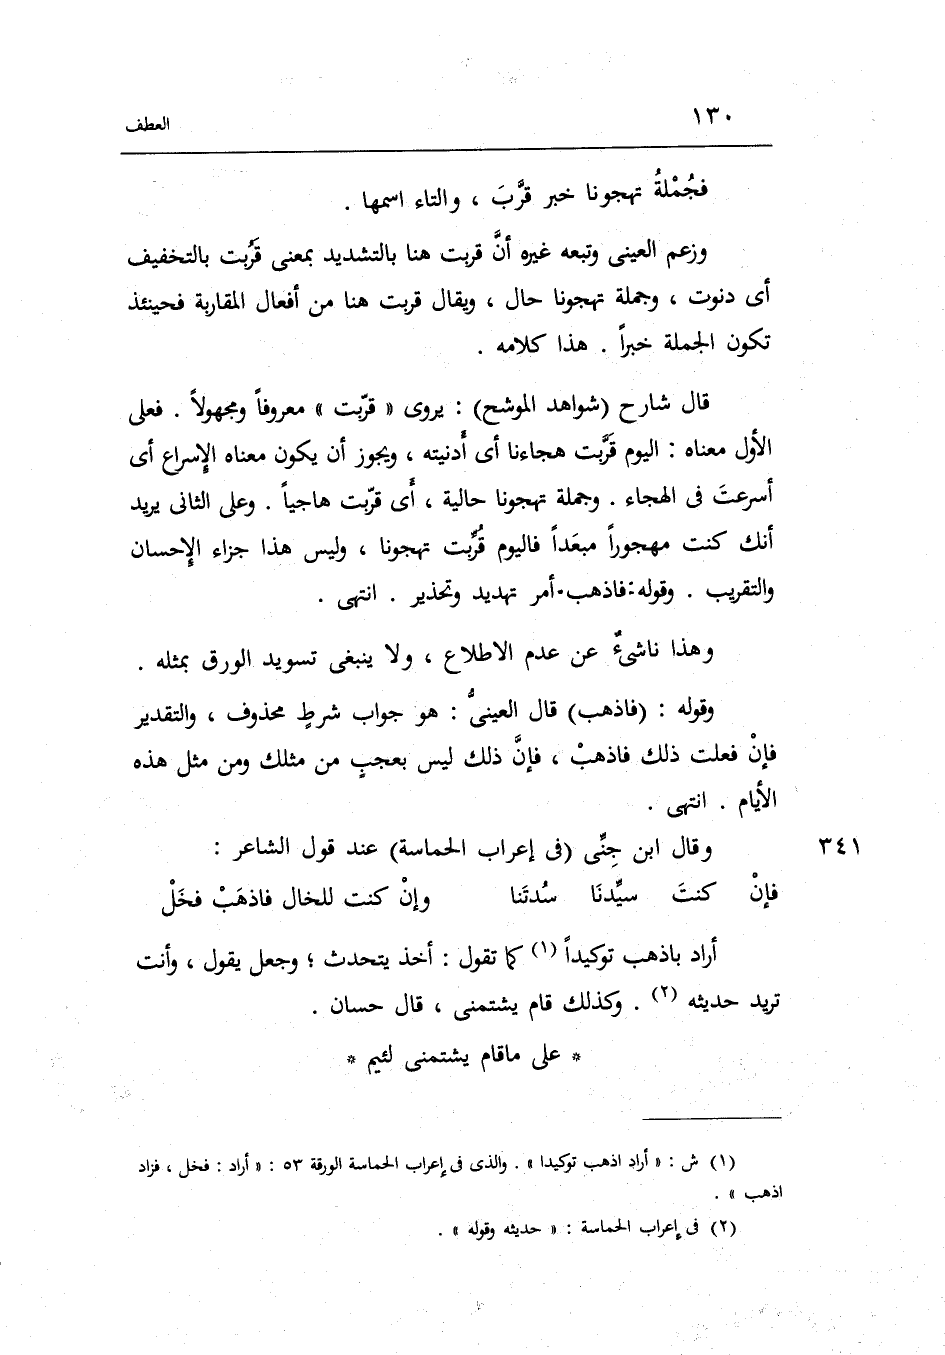 ١٣٠ العطف
فجُمْلةُ تهجونا خبر قرَّبَ ، والتاء اسمها .
وزعم العينى وتبعه غيره أنَّ قربت هنا بالتشديد بمعنى قَرُبت بالتخفيف
أى دنوت ، وجملة تهجونا حال ، ويقال قربت هنا من أفعال المقاربة فحينئذ
تكون الجملة خبراً . هذا كلامه .
قال شارح (شواهد الموشح) : يروى « قرّبت » معروفاً ومجهولاً . فعلى
الأول معناه : اليوم قَرَّبت هجاءنا أى أَدنيته ، ويجوز أن يكون معناه الإسراع أى
أسرعتَ فى الهجاء . وجملة تهجونا حالية ، أَى قرّبت هاجياً . وعلى الثانى يريد
أنك كنت مهجوراً مبعَداً فاليوم قُرِّبت تهجونا ، وليس هذا جزاء الإحسان
والتقريب . وقوله : فاذهب . أمر تهديد وتحذير . انتهى .
وهذا ناشىءٌ عن عدم الاطلاع ، ولا ينبغى تسويد الورق بمثله .
وقوله : (فاذهب) قال العينىُّ : هو جواب شرطٍ محذوف ، والتقدير
فإنْ فعلت ذلك فاذهبْ ، فإنَّ ذلك ليس بعجبٍ من مثلك ومن مثل هذه
الأيام . انتهى .
وقال ابن جِنِّى (فى إعراب الحماسة) عند قول الشاعر : ٣٤١
فإنْ كنتَ سيِّدنَا سُدتَنا وإنْ كنت للخال فاذهَبْ فخَلْ
أراد باذهب توكيداً (١) كما تقول : أخذ يتحدث ؛ وجعل يقول ، وأنت
تريد حديثه (٢) . وكذلك قام يشتمنى ، قال حسان .
* على ماقام يشتمنى لئيم *
(١) ش : « أراد اذهب توكيدا » . والذى فى إعراب الحماسة الورقة ٥٣ : « أراد : فخل ، فزاد
اذهب » .
(٢) فى إعراب الحماسة : « حديثه وقوله » .